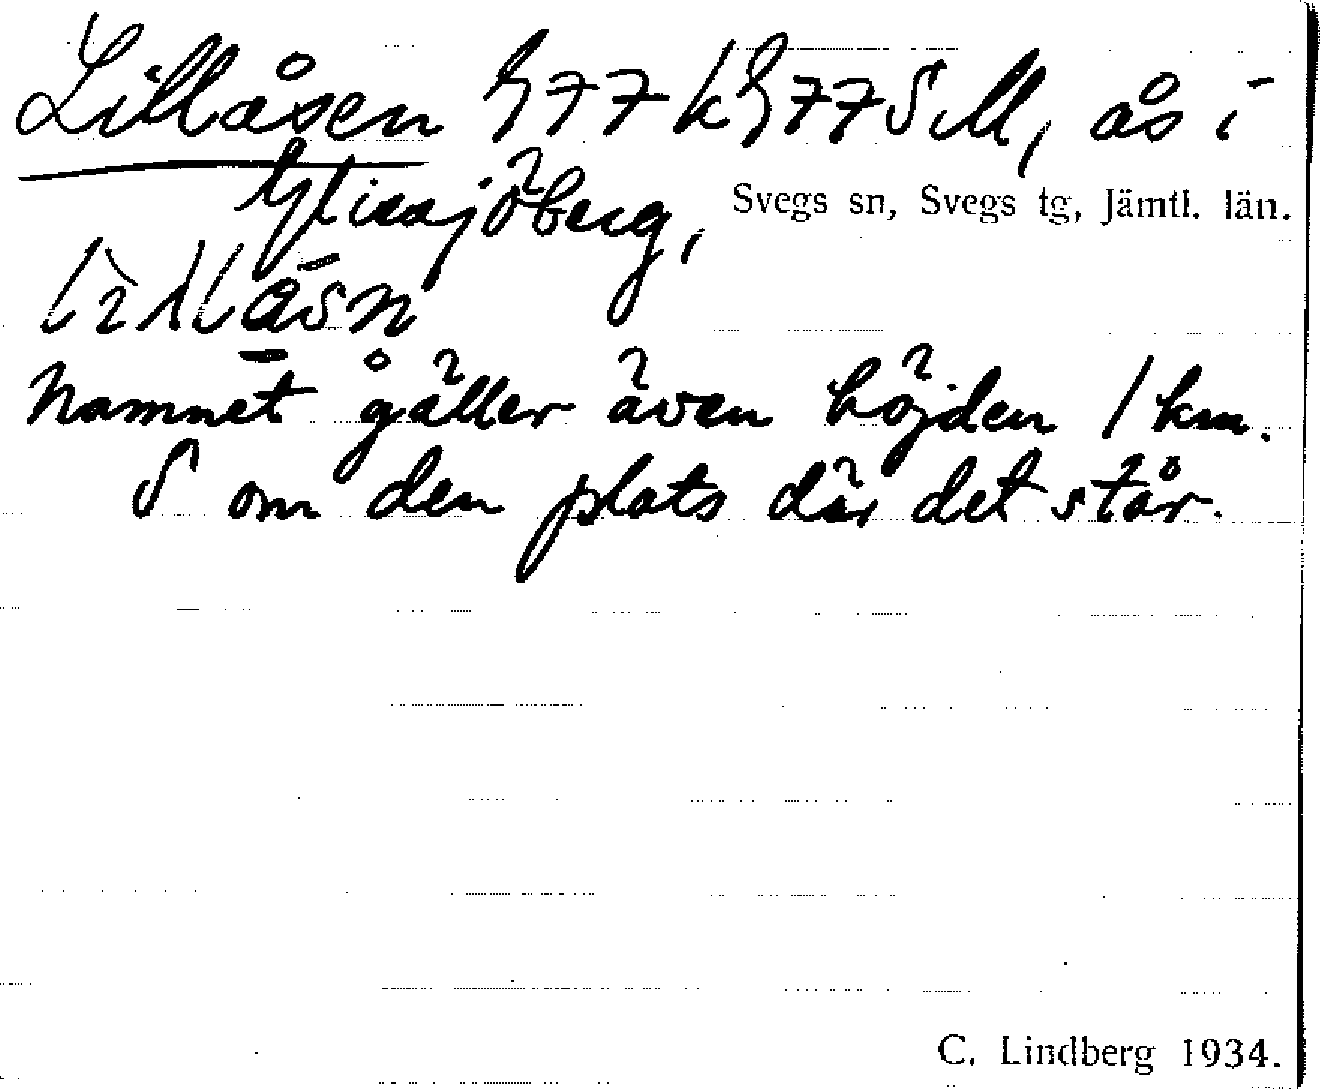 Lillåsen G77 kG77SM, ås i
Glissjöberg, Svegs sn, Svegs tg, Jämtl. län.
Namnet gäller även höjden 1 km.
S om den plats där det står.
C. Lindberg 1934.